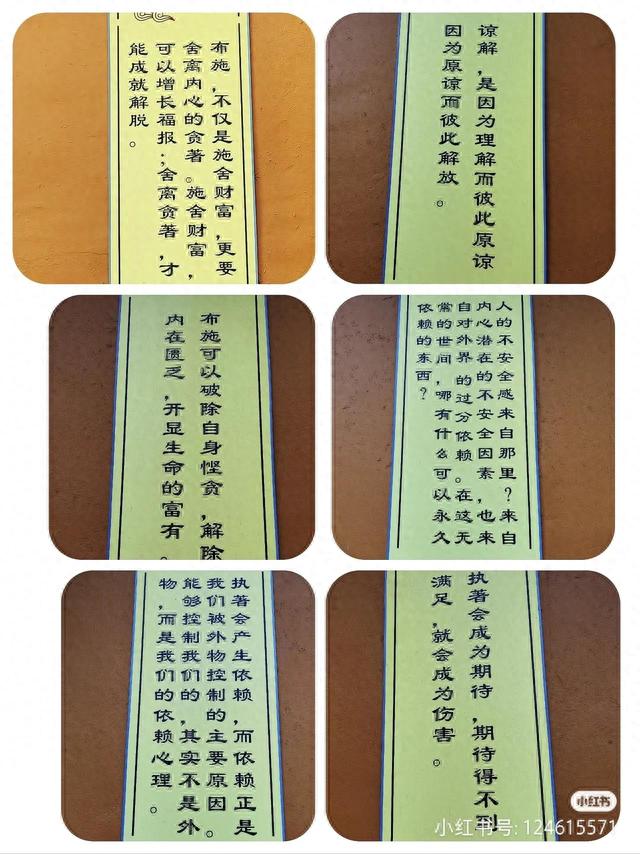 布施，不仅是施舍财富，更要
舍离内心的贪著。施舍财富，
可以增长福报；舍离贪著，才
能成就解脱。
谅解，是因为理解而彼此原谅
因为原谅而彼此解放。
布施可以破除自身悭贪，解除
内在匮乏，开显生命的富有。
人的不安全感来自那里？来自
内心潜在的不安全因素，也来
自对外界的过分依赖。在这无
常的世间，哪有什么可以永久
依赖的东西？
执著会产生依赖，而依赖正是
我们被外物控制的主要原因。
能够控制我们的，其实不是外
物，而是我们的依赖心理。
执著会成为期待，期待得不到
满足，就会成为伤害。
小红书
小红书号: 124615571